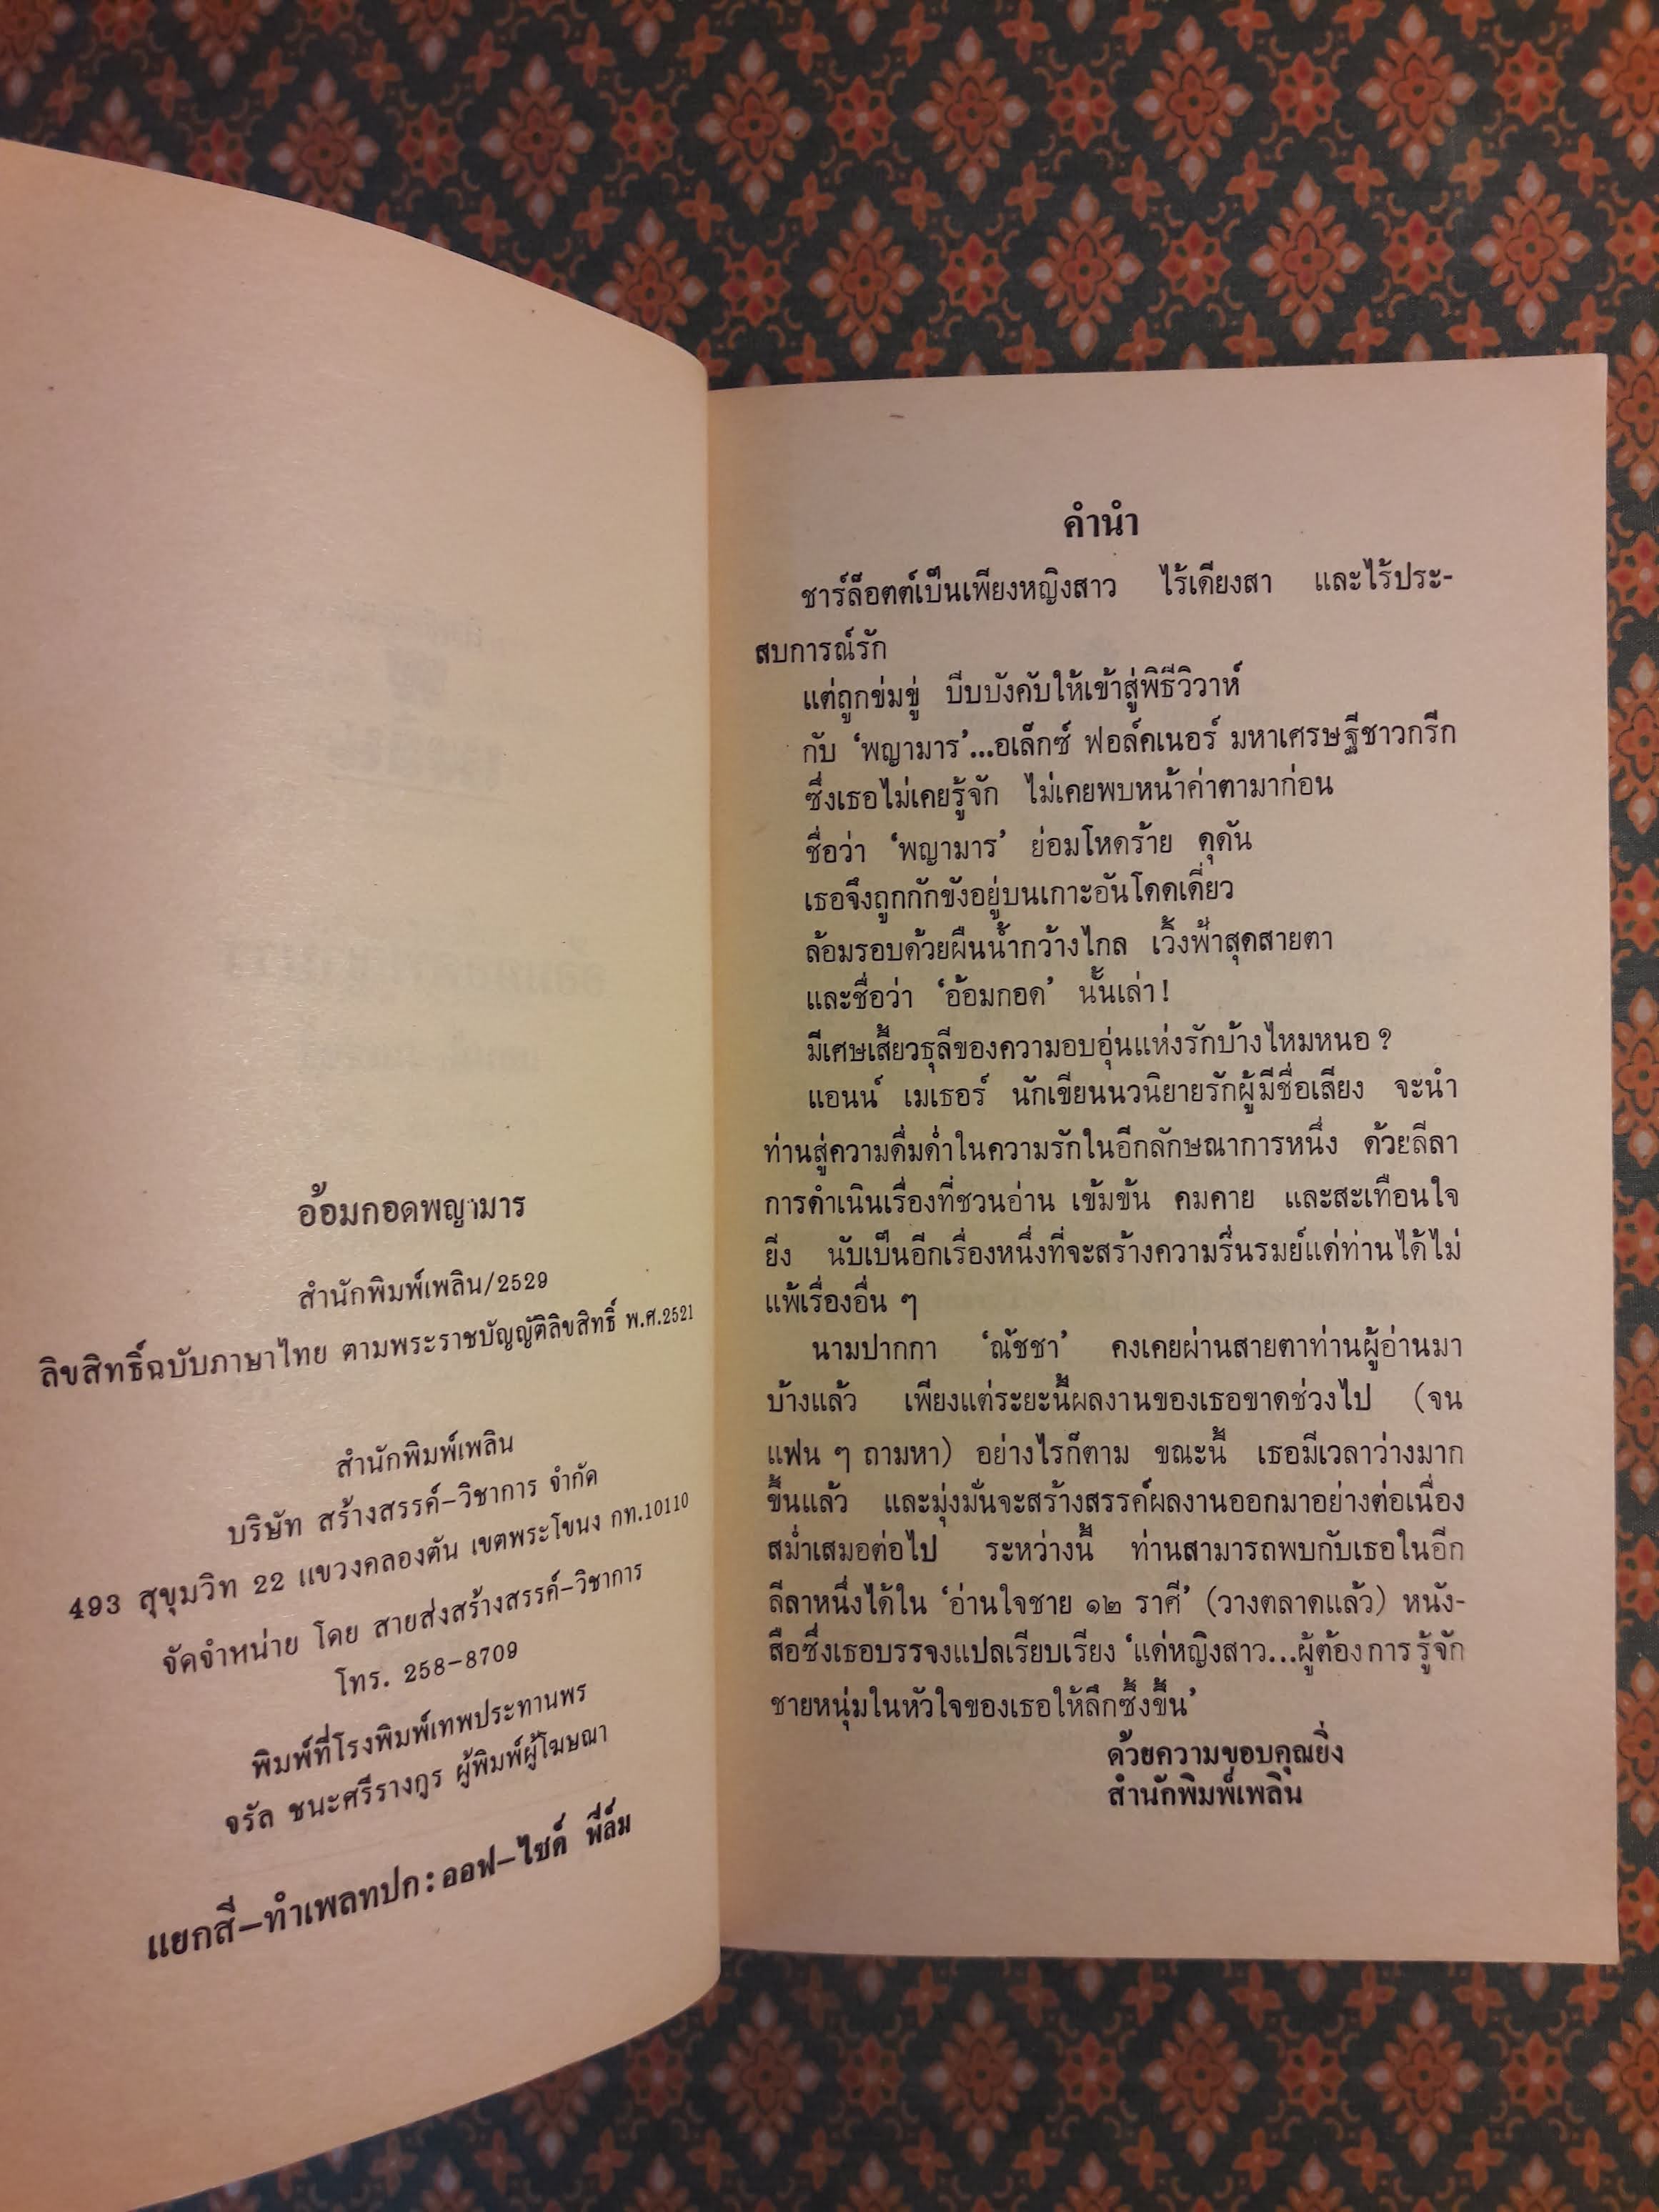 อ้อมกอดพญามาร
สำนักพิมพ์เพลิน/2529
ลิขสิทธิ์ฉบับภาษาไทย ตามพระราชบัญญัติลิขสิทธิ์ พ.ศ.2521
สำนักพิมพ์เพลิน
บริษัท สร้างสรรค์-วิชาการ จำกัด
493 สุขุมวิท 22 แขวงคลองตัน เขตพระโขนง กท.10110
จัดจำหน่าย โดย สายส่งสร้างสรรค์-วิชาการ
โทร. 258-8709
พิมพ์ที่โรงพิมพ์เทพประทานพร
จรัล ชนะศรีรางกูร ผู้พิมพ์ผู้โฆษณา
แยกสี-ทำเพลทปก : ออฟ-ไซด์ ฟิล์ม
คำนำ
ชาร์ล็อตต์เป็นเพียงหญิงสาว ไร้เดียงสา และไร้ประ-
สบการณ์รัก
แต่ถูกข่มขู่ บีบบังคับให้เข้าสู่พิธีวิวาห์
กับ ‘พญามาร’...อเล็กซ์ ฟอล์คเนอร์ มหาเศรษฐีชาวกรีก
ซึ่งเธอไม่เคยรู้จัก ไม่เคยพบหน้าค่าตามาก่อน
ชื่อว่า ‘พญามาร’ ย่อมโหดร้าย ดุดัน
เธอจึงถูกกักขังอยู่บนเกาะอันโดดเดี่ยว
ล้อมรอบด้วยผืนน้ำกว้างไกล เวิ้งฟ้าสุดสายตา
และชื่อว่า ‘อ้อมกอด’ นั้นเล่า!
มีเศษเสี้ยวธุลีของความอบอุ่นแห่งรักบ้างไหมหนอ ?
แอนน์ เมเธอร์ นักเขียนนวนิยายรักผู้มีชื่อเสียง จะนำ
ท่านสู่ความดื่มด่ำในความรักในอีกลักษณาการหนึ่ง ด้วยลีลา
การดำเนินเรื่องที่ชวนอ่าน เข้มข้น คมคาย และสะเทือนใจ
ยิ่ง นับเป็นอีกเรื่องหนึ่งที่จะสร้างความรื่นรมย์แด่ท่านได้ไม่
แพ้เรื่องอื่น ๆ
นามปากกา ‘ณัชชา’ คงเคยผ่านสายตาท่านผู้อ่านมา
บ้างแล้ว เพียงแต่ระยะนี้ผลงานของเธอขาดช่วงไป (จน
แฟน ๆ ถามหา) อย่างไรก็ตาม ขณะนี้ เธอมีเวลาว่างมาก
ขึ้นแล้ว และมุ่งมั่นจะสร้างสรรค์ผลงานออกมาอย่างต่อเนื่อง
สม่ำเสมอต่อไป ระหว่างนี้ ท่านสามารถพบกับเธอในอีก
ลีลาหนึ่งได้ใน ‘อ่านใจชาย ๑๒ ราศี’ (วางตลาดแล้ว) หนัง-
สือซึ่งเธอบรรจงแปลเรียบเรียง ‘แด่หญิงสาว...ผู้ต้องการรู้จัก
ชายหนุ่มในหัวใจของเธอให้ลึกซึ้งขึ้น’
ด้วยความขอบคุณยิ่ง
สำนักพิมพ์เพลิน